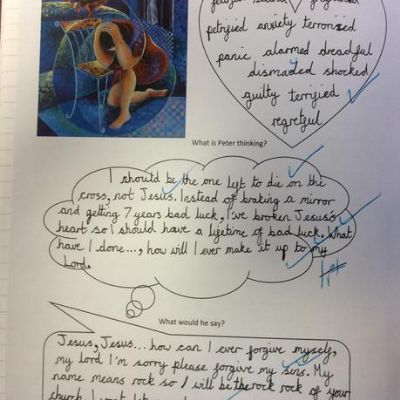 petrified anxiety terrorised
panic alarmed dreadful
dismaded shocked
guilty terrified
regretful
What is Peter thinking?
I should be the one left to die on the
cross, not Jesus. Instead of braking a mirror
and getting 7 years bad luck, I've broken Jesus's
heart so I should have a lifetime of bad luck. What
have I done..., how will I ever make it up to my
Lord.
What would he say?
Jesus, Jesus... how can I ever forgive myself,
my lord I'm sorry please forgive my sins. My
name means rock so I will be the rock rock of your
church. I